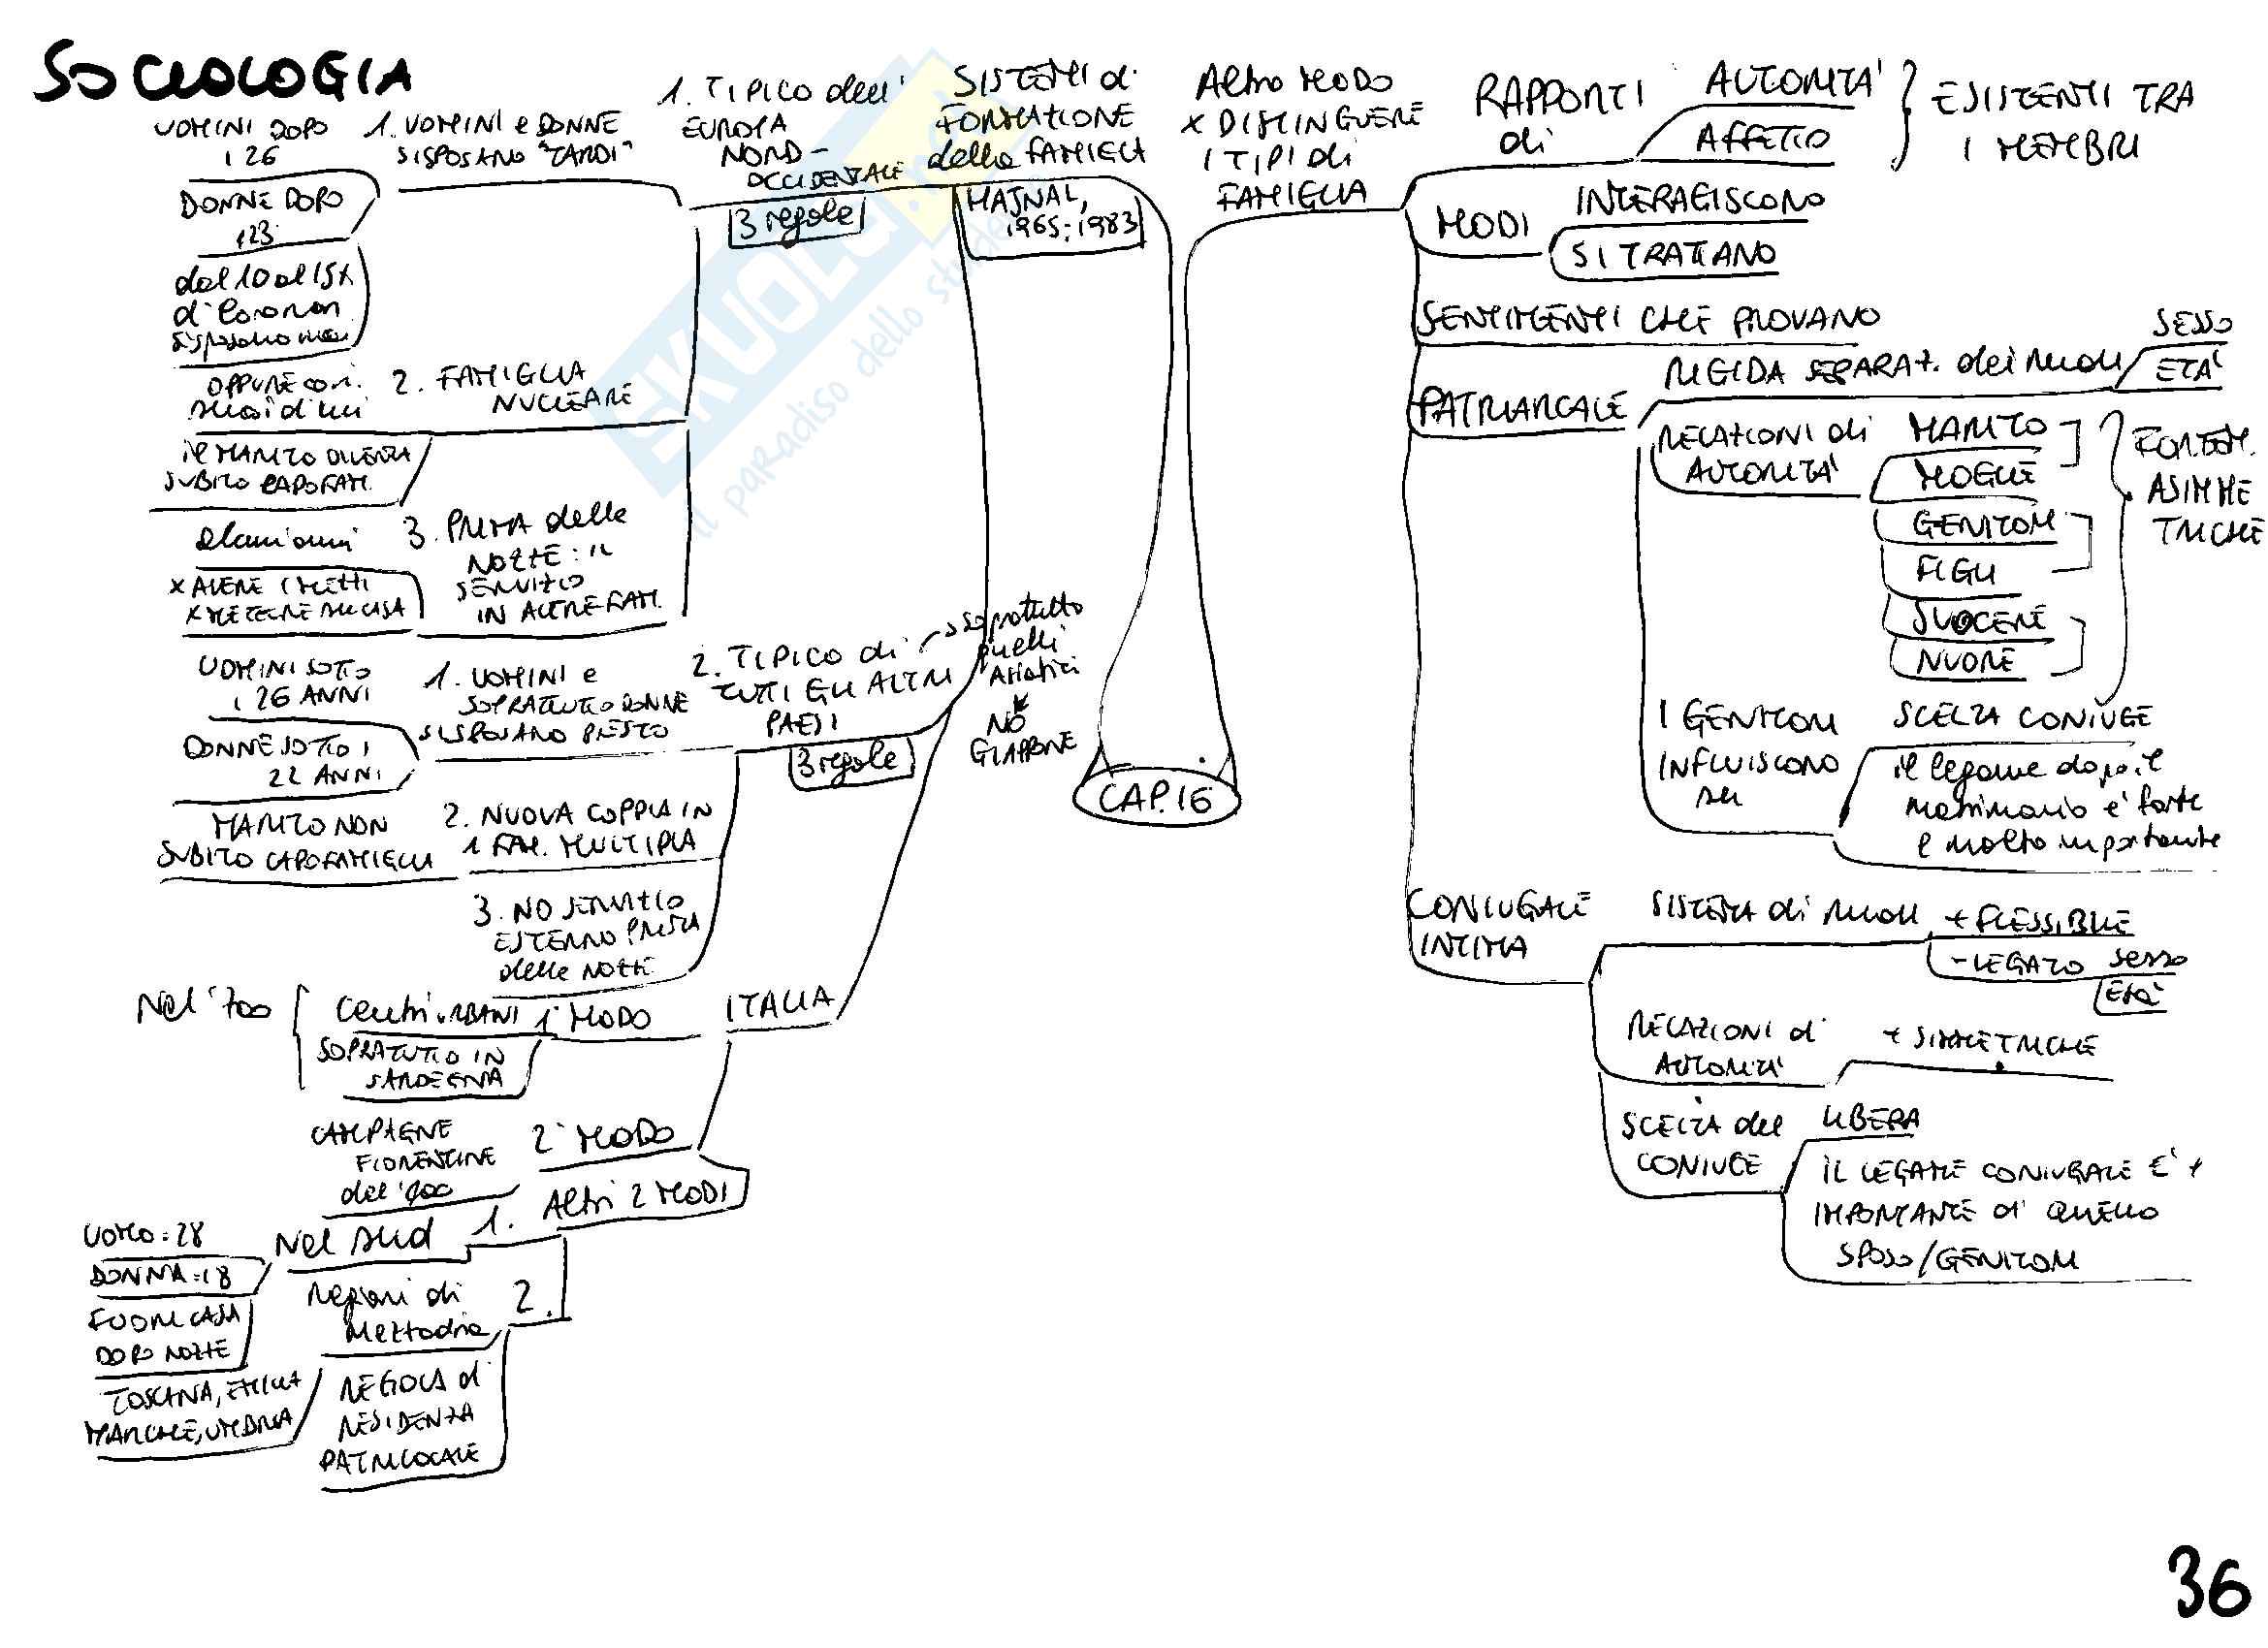 SOCIOLOGIA
UOMINI DOPO
i 26
DONNE DOPO
i 23
dal 10 al 15%
di loro non
si sposano mai
1. UOMINI e DONNE
SI SPOSANO "TARDI"
OPPURE con
2. FAMIGLIA
NUCLEARE
il MARITO DIVENTA
SUBITO CAPOFAM.
alcuni anni
x AVERE i MEZZI
x METTERE SU CASA
3. PRIMA delle
NOZZE: il
SERVIZIO
IN ALTRE FAM.
1. TIPICO dell'
EUROPA
NORD-
OCCIDENTALE
3 regole
SISTEMI di
FORMAZIONE
della FAMIGLIA
HAJNAL,
1965; 1983
UOMINI SOTTO
i 26 ANNI
DONNE SOTTO i
22 ANNI
1. UOMINI e
SOPRATTUTTO DONNE
SI SPOSANO PRESTO
MARITO NON
SUBITO CAPOFAMIGLIA
2. NUOVA COPPIA IN
1 FAM. MULTIPLA
3. NO SERVIZIO
ESTERNO PRIMA
delle NOZZE
2. TIPICO di
TUTTI GLI ALTRI
PAESI
3 regole
soprattutto
quelli
Asiatici
NO
GIAPPONE
Nel '700
Centri URBANI
SOPRATUTTO IN
SARDEGNA
1° MODO
ITALIA
CAMPAGNE
FIORENTINE
del '400
2° MODO
Altri 2 MODI
1.
Nel sud
UOMO: 28
DONNA: 18
FUORI CASA
DOPO NOZZE
2.
Regioni di
Mezzadria
TOSCANA, EMILIA
MARCHE, UMBRIA
REGOLA di
RESIDENZA
PATRILOCALE
CAP. 16
Altro MODO
x DISTINGUERE
I TIPI di
FAMIGLIA
RAPPORTI
di
AUTORITA'
AFFETTO
ESISTENTI TRA
I MEMBRI
MODI
INTERAGISCONO
SI TRATTANO
SENTIMENTI CHE PROVANO
PATRIARCALE
RIGIDA SEPARAZ. dei RUOLI
SESSO
ETA'
RELAZIONI di
AUTORITA'
MARITO
MOGLIE
GENITORI
FIGLI
SUOCERE
NUORE
FORTEM.
ASIMME
TRICHE
I GENITORI
INFLUISCONO
su
SCELTA CONIUGE
il legame dopo il
matrimonio e' forte
e molto importante
CONIUGALE
INTIMA
SISTEMA di RUOLI
+ FLESSIBILE
- LEGATO sesso
Età
RELAZIONI di
AUTORITA'
+ SIMMETRICHE
SCELTA del
CONIUGE
LIBERA
IL LEGAME CONIUGALE E' +
IMPORTANTE di QUELLO
SPOSO/GENITORI
SKUOLA.net
il paradiso dello studente
36